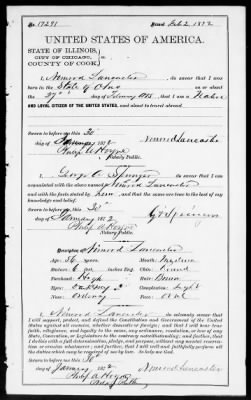 No 17291 Issued Feb 2, 1872
UNITED STATES OF AMERICA.
STATE OF ILLINOIS,
CITY OF CHICAGO,
COUNTY OF COOK.
I, Nimrod Lancaster, do swear that I was
born in the State of Ohio on or about
the 27th day of February, that I am a Native
AND LOYAL CITIZEN OF THE UNITED STATES, and about to travel abroad.
Sworn to before me this 30
day of January 1872 Nimrod Lancaster
Philip A Hoyne
Notary Public.
I, George A Springer, do swear that I am
acquainted with the above named Nimrod Lancaster
and with the facts stated by him, and that the same are true to the
best of my knowledge and belief.
Sworn to before me this 30th
day of January 1872
Philip A Hoyne
Notary Public.
Description of Nimrod Lancaster
Age: 36 years Mouth: Medium
Stature: 6 feet inches Eng. Chin: Round
Forehead: High Hair: Brown
Eyes: Complexion: Light
Nose: Ordinary Face: Oval
I, Nimrod Lancaster do solemnly swear that
I will support, protect, and defend the Constitution and Government of the United
States against all enemies, whether domestic or foreign; and that I will bear true
faith, allegiance, and loyalty to the same, any ordinance, resolution, or law of any State,
Convention, or Legislature to the contrary notwithstanding; and further, that I do
this with a full determination, pledge, and purpose, without any mental reservation or
evasion whatsoever; and further, that I will well and faithfully perform all
the duties which may be required of me by law. So help me God.
Sworn to before me this 30
day of January 1872 Nimrod Lancaster
Philip A Hoyne
Notary Public